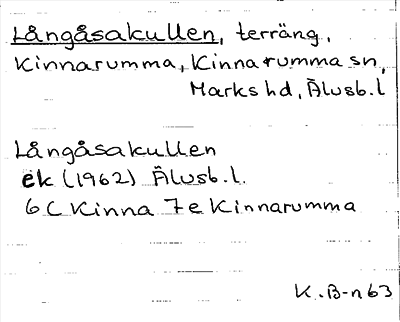 Långåsakullen, terräng,
Kinnarumma, Kinnarumma sn,
Marks hd, Älvsb. l
Långåsakullen
ek (1962) Älvsb. l.
6 C Kinna 7 e Kinnarumma
K. B-n 63